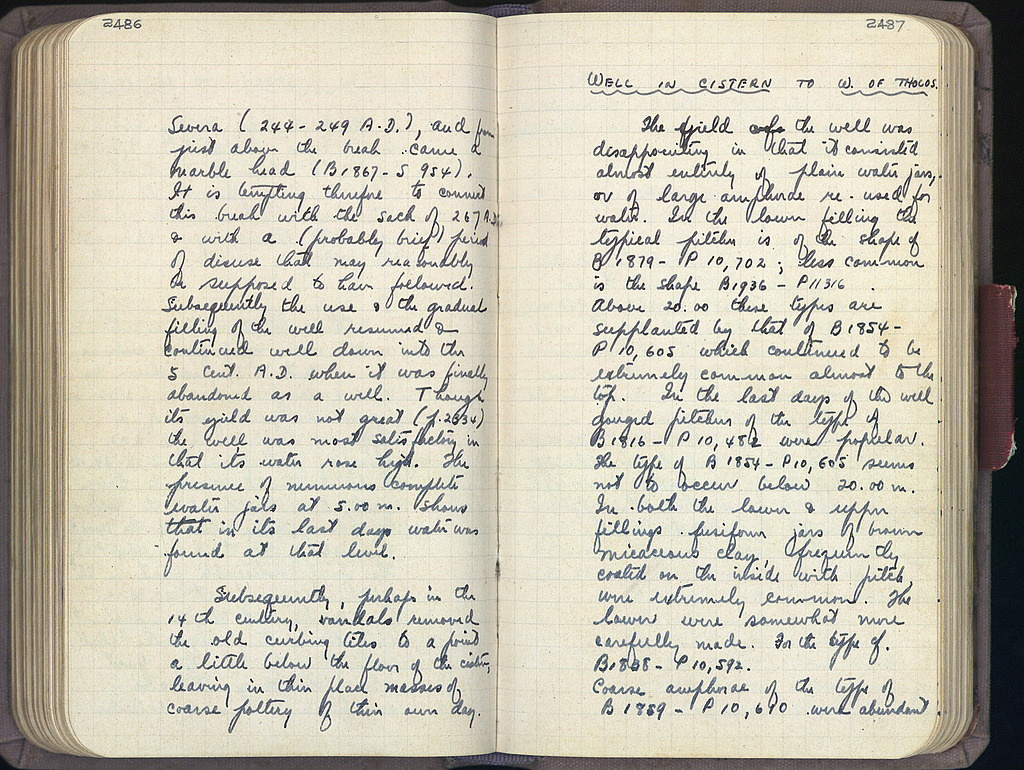 2486
Severa (244-249 A.D.), and from
just above the break came a
marble head (B1867- S 954).
It is tempting therefore to connect
this break with the sack of 267 A.D.
& with a (probably brief) period
of disuse that may reasonably
be supposed to have followed.
Subsequently the use & the gradual
filling of the well resumed &
continued well down into the
5 cent. A.D. when it was finally
abandoned as a well. Though
its yield was not great (p. 2334)
the well was most satisfactory in
that its water rose high. The
presence of numerous complete
water jars at 5.00 m. shows
that in its last days water was
found at that level.
Subsequently, perhaps in the
14 th century, vandals removed
the old curbing tiles to a point
a little below the floor of the cistern,
leaving in their place masses of
coarse pottery of their own day.
2487
WELL IN CISTERN TO W. OF THOLOS.
The yield of the well was
disappointing in that it consisted
almost entirely of plain water jars,
or of large amphorae re-used for
water. In the lower filling the
typical pitcher is of the shape of
B 1879- P 10,702; less common
is the shape B1936- P11316.
Above 20.00 these types are
supplanted by that of B1854-
P 10,605 which continued to be
extremely common almost to the
top. In the last days of the well
gouged pitchers of the type of
B1816- P 10,482 were popular.
The type of B 1854- P10,605 seems
not to occur below 20.00 m.
In both the lower & upper
fillings fusiform jars of brown
micaceous clay, frequently
coated on the inside with pitch,
were extremely common. The
lower were somewhat more
carefully made. For the type cf.
B1838- P10,592.
Coarse amphorae of the type of
B 1859- P 10,610 were abundant